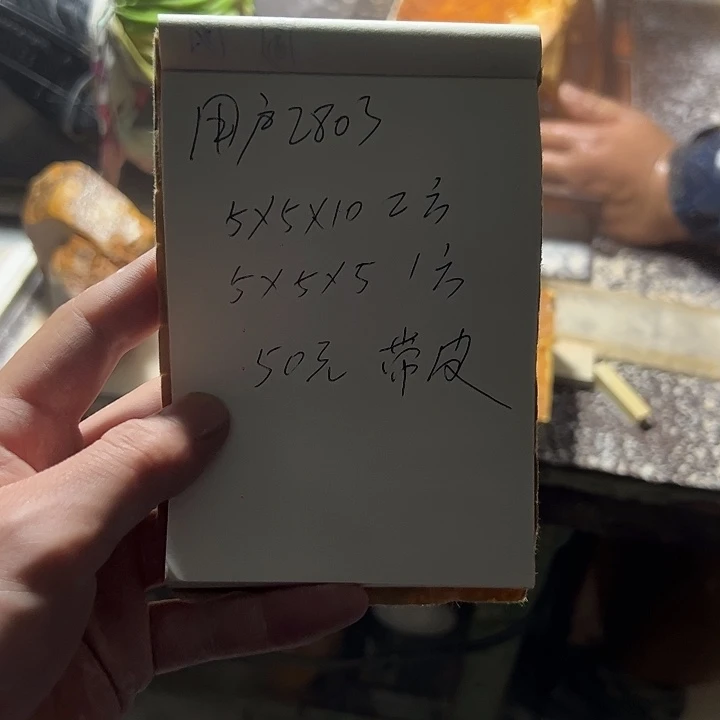 用户2803
5×5×10 2方
5×5×5 1方
50元 带皮